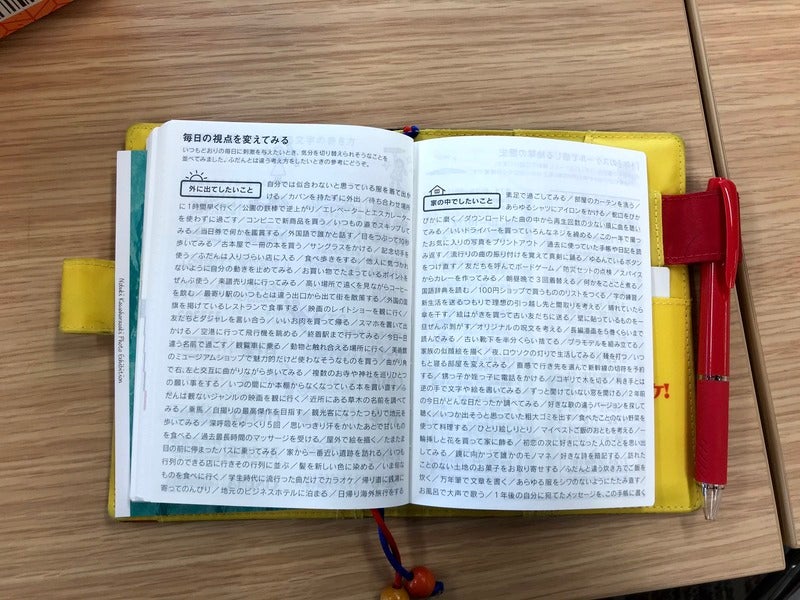 毎日の視点を変えてみる
いつもどおりの毎日に刺激を与えたいとき、気分を切り替えられそうなことを
並べてみました。ふだんとは違う考え方をしたいときの参考にどうぞ。
外に出てしたいこと
自分では似合わないと思っている服を着て出か
ける／カバンを持たずに外出／待ち合わせ場所
に1時間早く行く／公園の鉄棒で逆上がり／エレベーターとエスカレーター
を使わずに過ごす／コンビニで新商品を買う／いつもの道でスキップして
みる／当日券で何かを鑑賞する／外国語で誰かと話す／目をつぶって10秒
歩いてみる／古本屋で一冊の本を買う／サングラスをかける／記念切手を
使う／ふだんは入りづらい店に入る／食べ歩きをする／他人に気づかれ
ないように自分の動きを止めてみる／お買い物でたまっているポイントを
ぜんぶ使う／楽譜売り場に行ってみる／高い場所で遠くを見ながらコーヒー
を飲む／最寄り駅のいつもとは違う出口から出て街を散策する／外国の国
旗を掲げているレストランで食事する／映画のレイトショーを観に行く／
友だちとダジャレを言い合う／いいお肉を買って帰る／スマホを置いて出
かける／空港に行って飛行機を眺める／終着駅まで行ってみる／今日一日
違う名前で過ごす／観覧車に乗る／動物と触れ合える場所に行く／美術館
のミュージアムショップで魅力的だけど使わなそうなものを買う／曲がり角
で右、左と交互に曲がりながら歩いてみる／複数のお寺や神社を巡りひとつ
の願い事をする／いつの間にか本棚からなくなっている本を買い直す／ふ
だんは観ないジャンルの映画を観に行く／近所にある草木の名前を調べて
みる／乗馬／自撮りの最高傑作を目指す／観光客になったつもりで地元を
歩いてみる／深呼吸をゆっくり5回／思いっきり汗をかいたあとで甘いもの
を食べる／過去最長時間のマッサージを受ける／屋外で絵を描く／たまたま
目の前に停まったバスに乗ってみる／家から一番近い遺跡を訪れる／いつも
行列のできる店に行きその行列に並ぶ／髪を新しい色に染める／いま旬な
ものを食べに行く／学生時代に流行った曲だけでカラオケ／帰り道に銭湯に
寄ってのんびり／地元のビジネスホテルに泊まる／日帰り海外旅行をする
家の中でしたいこと
裸足で過ごしてみる／部屋のカーテンを洗う／
あらゆるシャツにアイロンをかける／蛇口をぴか
ぴかに磨く／ダウンロードした曲の中から再生回数の少ない順に曲を聴い
てみる／いいドライバーを買っていろんなネジを締める／この一年で撮っ
たお気に入りの写真をプリントアウト／過去に使っていた手帳や日記を読
み返す／流行りの曲の振り付けを覚えて真剣に踊る／ゆるんでいるボタン
をつけ直す／友だちを呼んでボードゲーム／防災セットの点検／スパイス
からカレーを作ってみる／朝昼晩で3回着替える／何かをことこと煮る／
国語辞典を読む／100円ショップで買うもののリストをつくる／字の練習／
新生活を送るつもりで理想の引っ越し先と間取りを考える／晴れていたら
傘を干す／絵はがきを買って古い友だちに送る／壁に貼っているものを一
旦ぜんぶ剥がす／オリジナルの呪文を考える／長編漫画を5巻くらいまで
読んでみる／古い靴下を半分くらい捨てる／プラモデルを組み立てる／
家族の似顔絵を描く／夜、ロウソクの灯りで生活してみる／麺を打つ／いつ
もと寝る部屋を変えてみる／直感で行き先を選んで新幹線の切符を予約
する／甥っ子か姪っ子に電話をかける／ノコギリで木を切る／利き手とは
逆の手で文字や絵を書いてみる／ずっと開けていない窓を開ける／2年前
の今日がどんな日だったか調べてみる／好きな歌の違うバージョンを探して
聴く／いつか出そうと思っていた粗大ゴミを出す／食べたことのない野菜を
使って料理する／ひとり絵しりとり／マイベストご飯のおともを考える／一
輪挿しと花を買って家に飾る／初恋の次に好きになった人のことを思い出
してみる／鏡に向かって誰かのモノマネ／好きな詩を暗記する／訪れた
ことのない土地のお菓子をお取り寄せする／ふだんと違う炊き方でご飯を
炊く／万年筆で文章を書く／あらゆる服をシワのないようにたたみ直す／
お風呂で大声で歌う／1年後の自分に宛てたメッセージを、この手帳に書く
Natsuki Kuwahararuaki Photo Exhibition